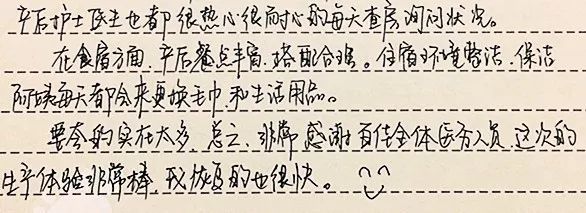 产后护士医生也都很热心很耐心的每天查房询问状况。
在食宿方面,产后餐点丰富,搭配合理。住宿环境整洁,保洁
阿姨每天都会来更换毛巾和生活用品。
要夸的实在太多,总之,非常感谢百佳全体医务人员,这次的
生产体验非常棒,我恢复的也很快。